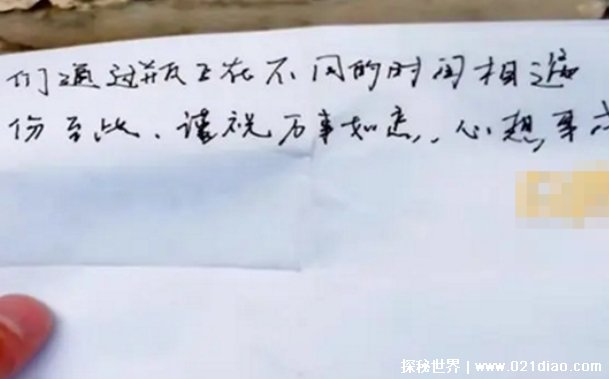 们通过瓶子在不同的时间相遇
份至此、谨祝万事如意,心想事成
探秘世界|www.021diao.com